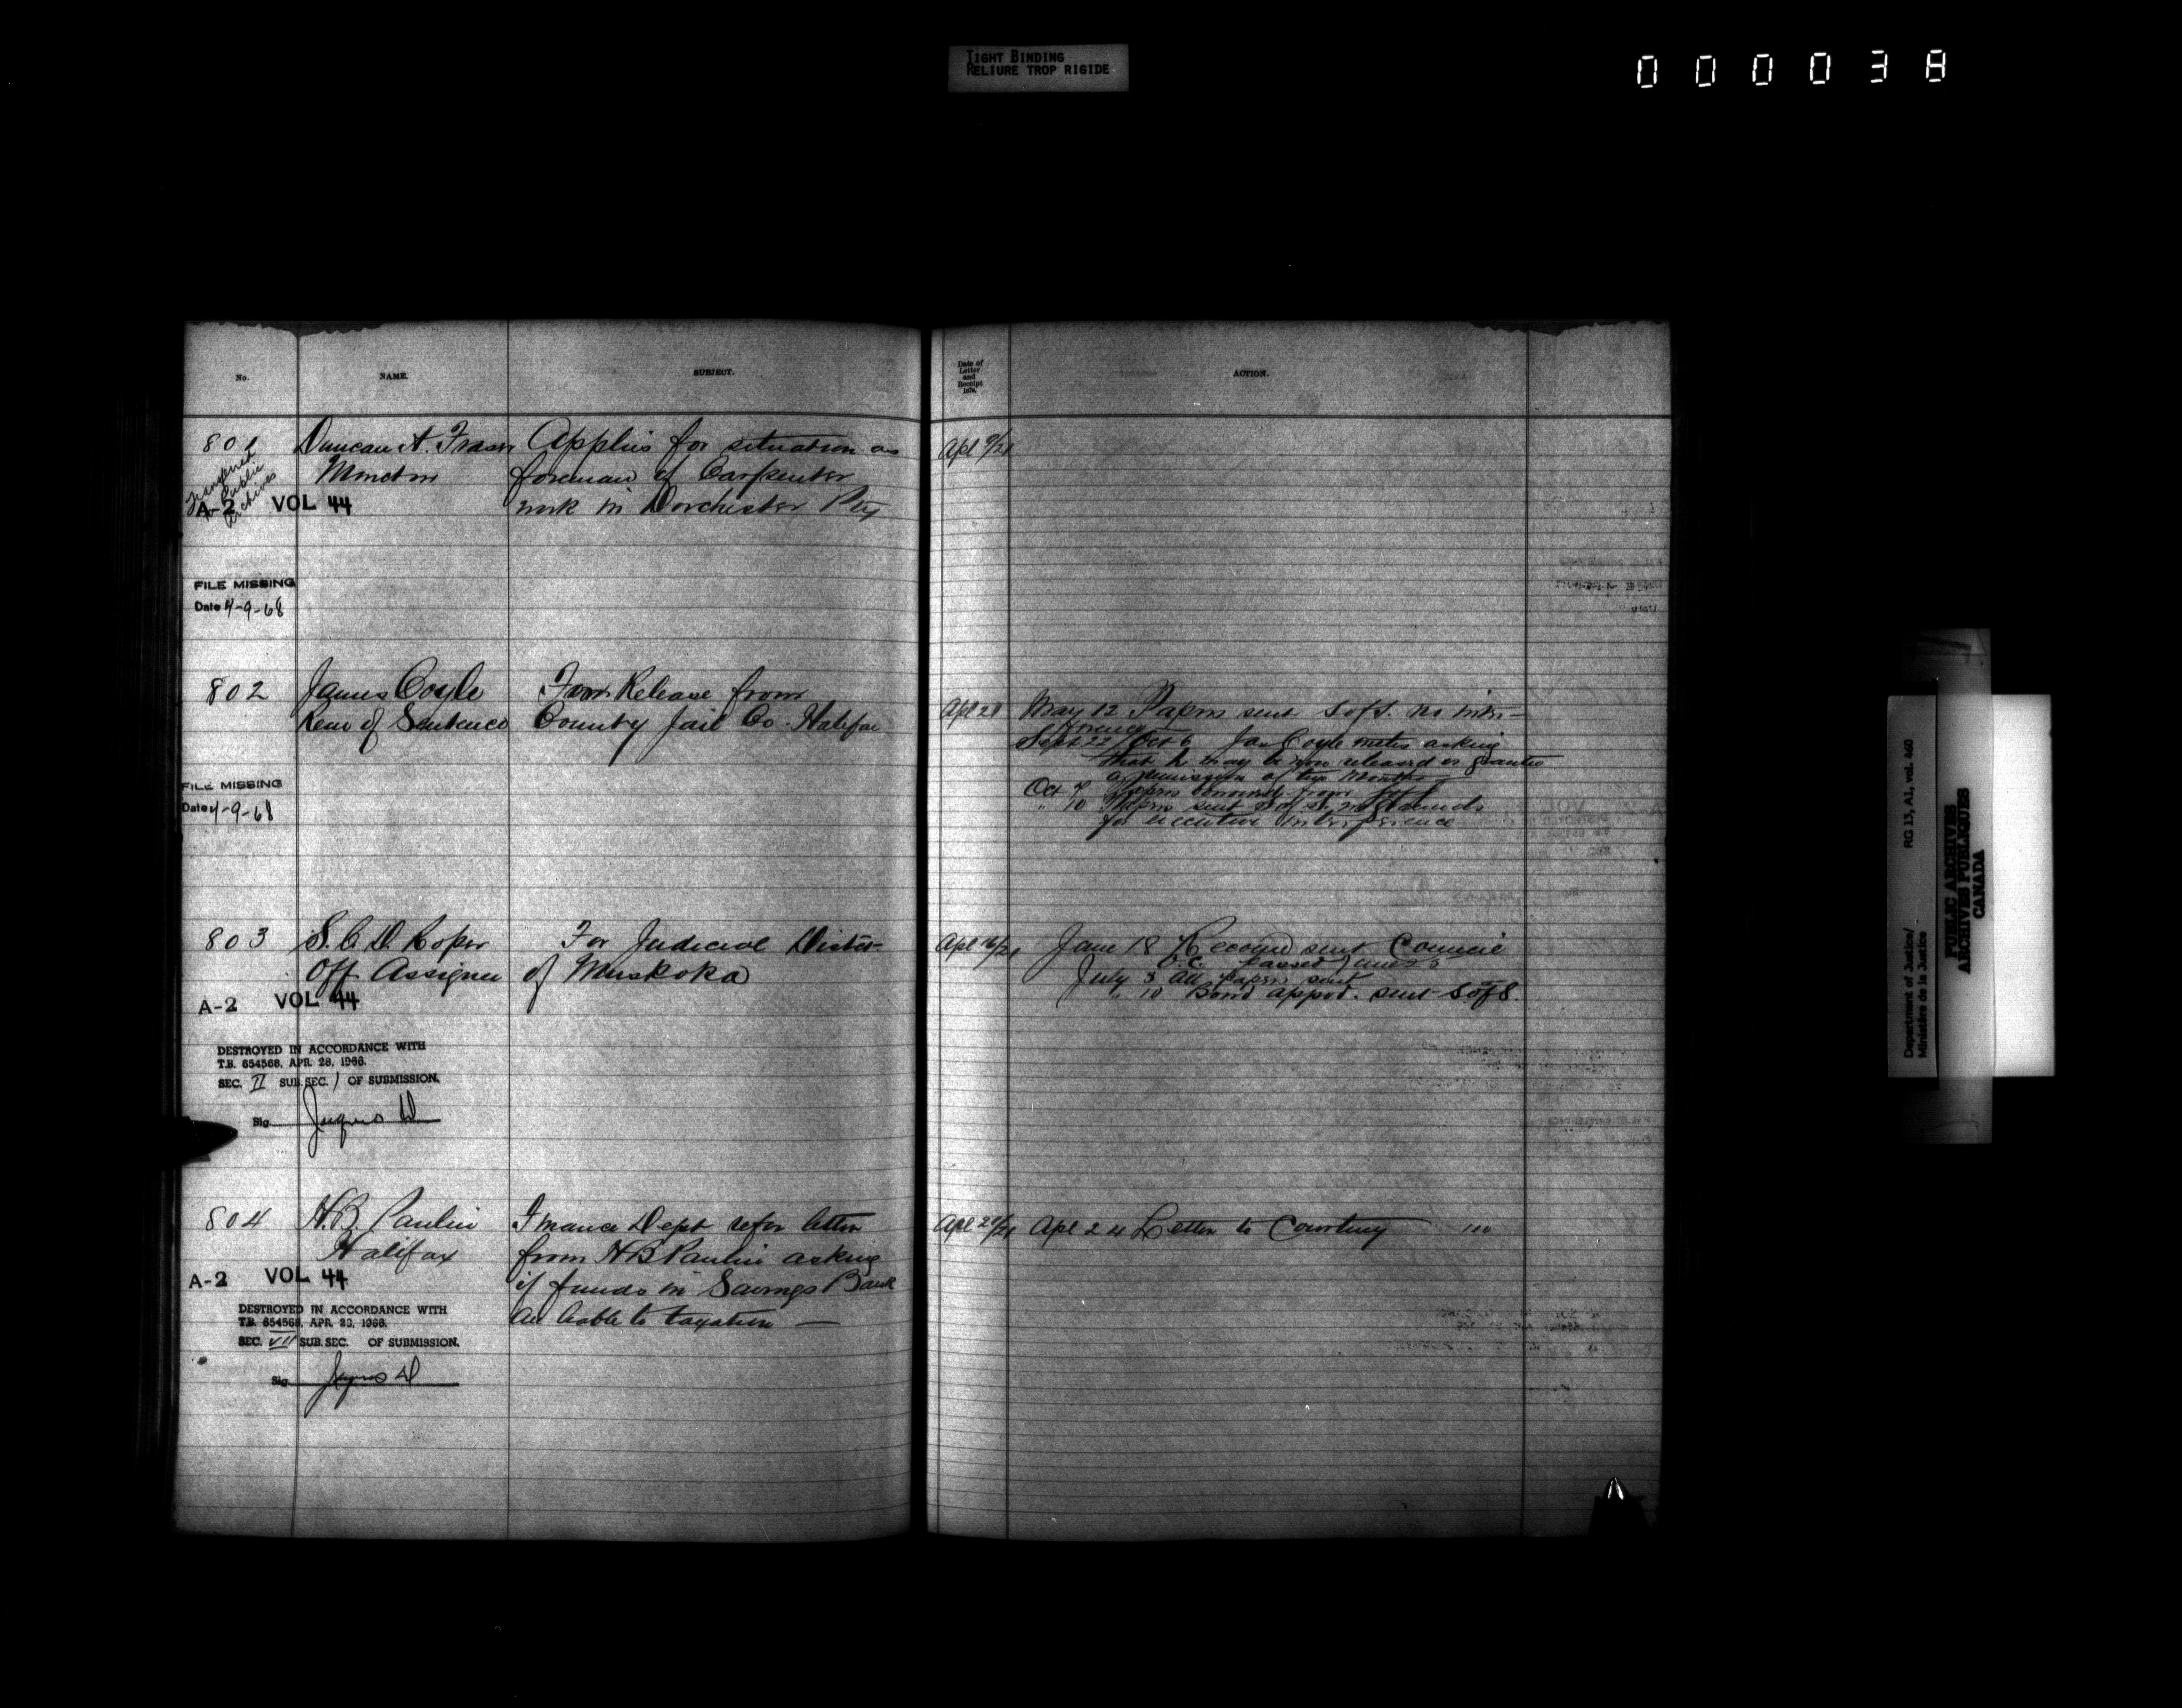 TIGHT BINDING
RELIURE TROP RIGIDE
000038
No.
NAME.
SUBJECT.
801
Duncan A. Fraser
Moncton
Applies for situation as
foreman of Carpenter
work in Dorchester Pty
Transferred
to Public
Archives
A-2 VOL 44
FILE MISSING
Date 4-9-68
802
James Coyle
Rem of Sentence
From Release from
County Jail Co. Halifax
FILE MISSING
Date 4-9-68
803
S. C. D. Roper
Off Assignee
For Judicial District
of Muskoka
A-2 VOL 44
DESTROYED IN ACCORDANCE WITH
T.B. 654568, APR. 28, 1966.
SEC. II SUB. SEC. 1 OF SUBMISSION.
Sig.
804
H.B. Paulin
Halifax
Finance Dept refer letter
from H B Paulin asking
if funds in Savings Bank
are liable to taxation —
A-2 VOL 44
DESTROYED IN ACCORDANCE WITH
T.B. 654568, APR. 28, 1966.
SEC. VII SUB. SEC. OF SUBMISSION.
Sig.
Date of
Letter
and
Receipt
1879.
ACTION.
Apl 9/21
Apl 21
May 12 Papers sent S of S. no inter-
Sept 22/Oct 6 Jas Coyle writes asking
that he may be now released or granted
a remission of two months
Oct 7 Papers returned from S of S
" 10 Papers sent S of S. no grounds
for executive interference
Apl 16/21
June 18 Recomd sent Council
O.C. passed June 25
July 3 All papers sent
" 10 Bond appvd. sent S of S
Apl 20/21
Apl 24 Letter to Courtney
Department of Justice/
Ministère de la Justice
RG 13, A1, vol. 460
PUBLIC ARCHIVES
ARCHIVES PUBLIQUES
CANADA